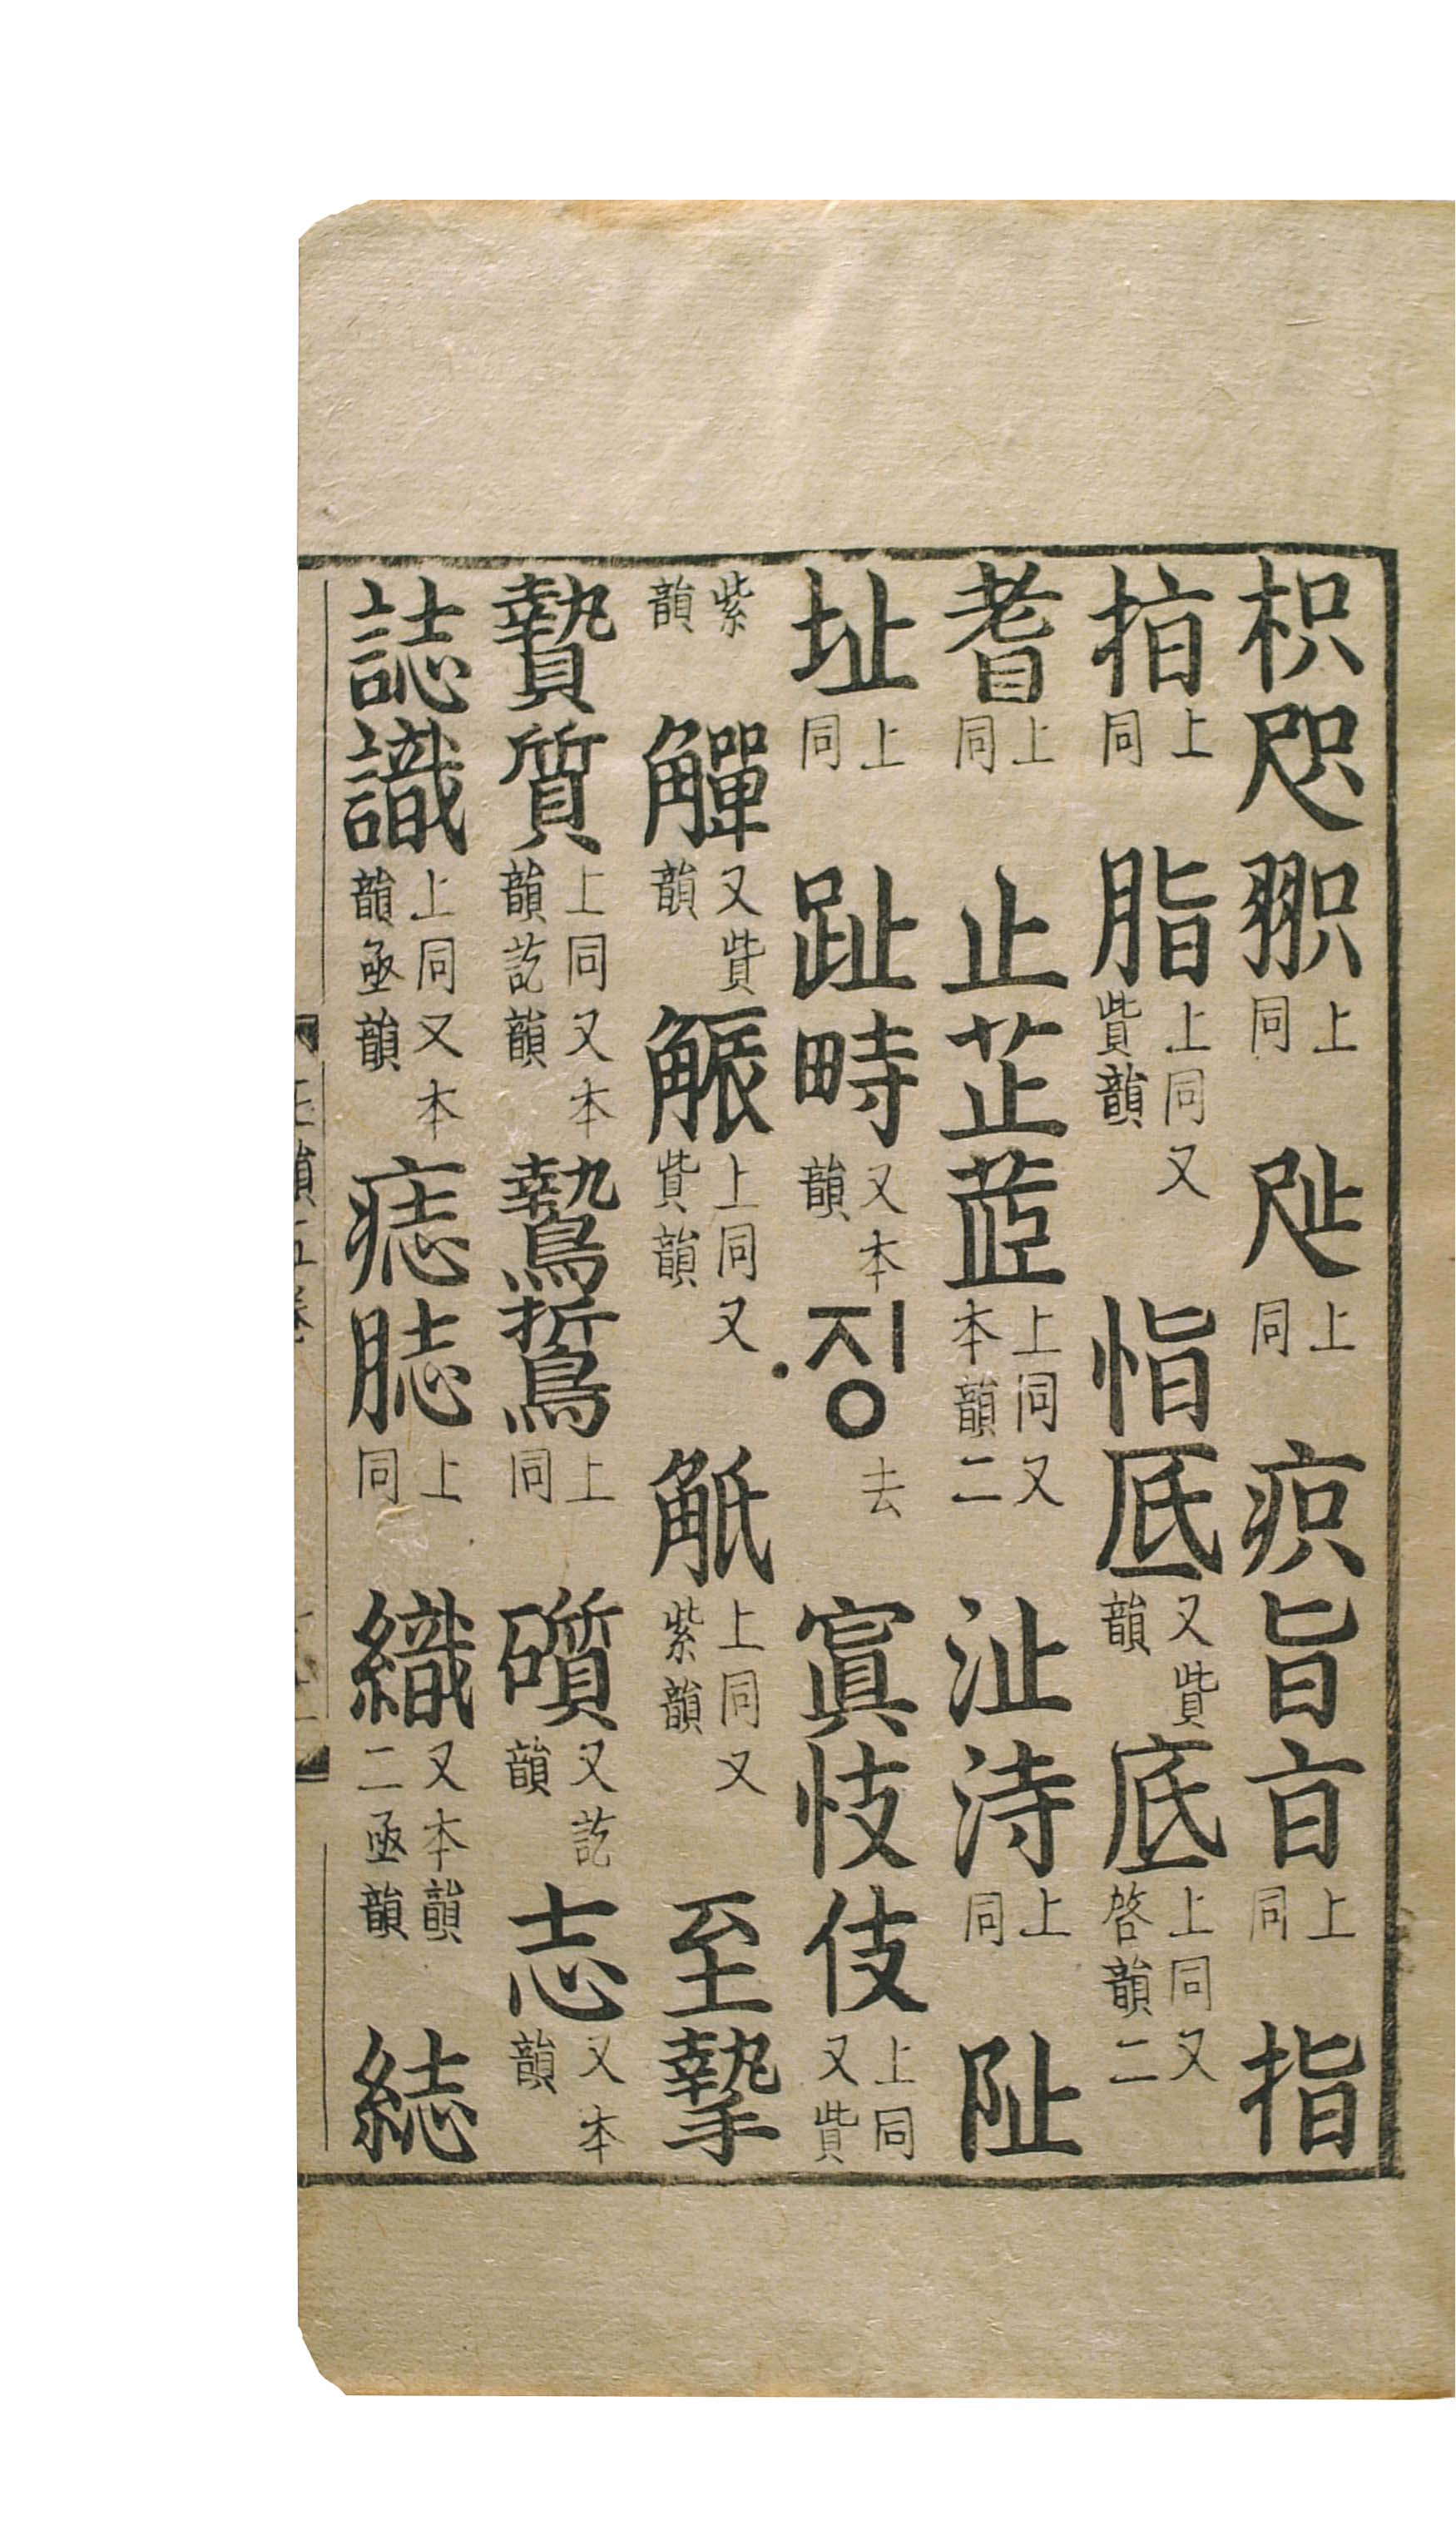 枳咫上同上同疻旨上同指
上同脂上同又貲韻恉厎又貲韻底上同又啓韻二
耆上同止芷茝上同又本韻二沚洔上同阯
址上同趾畤又本韻·징去寘忮伎上同又貲
紫韻觶又貲韻䚨上同又貲韻觗上同又紫韻至摯
贄質上同又本韻訖韻鷙上同礩又訖韻志又本韻
誌識上同又本韻亟韻痣上同織又本韻二亟韻